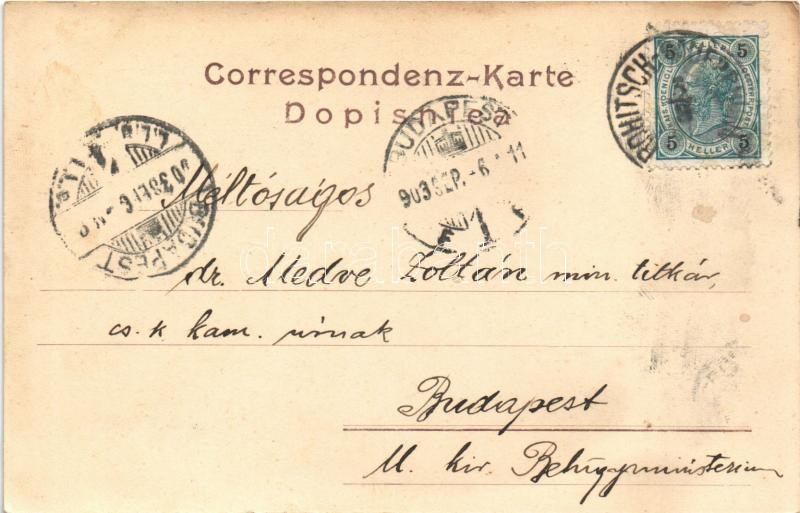 Correspondenz-Karte
Dopisnica
5 5
5 HELLER 5
ROHITSCH
BUDAPEST
903 SEP. -6
BUDAPEST
903 SEP 6
Méltóságos
dr. Medve Zoltán min. titkár,
cs. k. kam. úrnak
Budapest
M. kir. Belügyministerium
darabanth